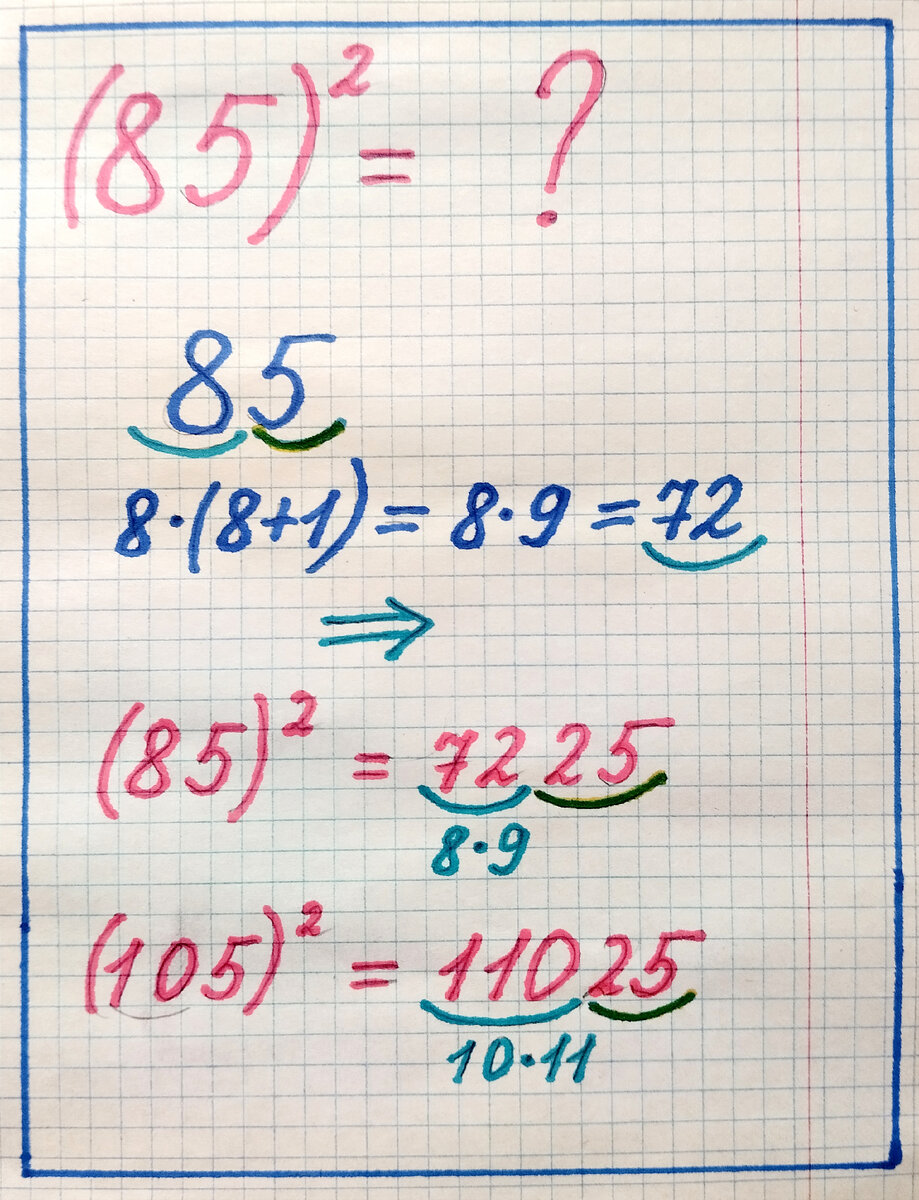 (85)² = ?
85
8·(8+1) = 8·9 = 72
⇒
(85)² = 7225
8·9
(105)² = 11025
10·11